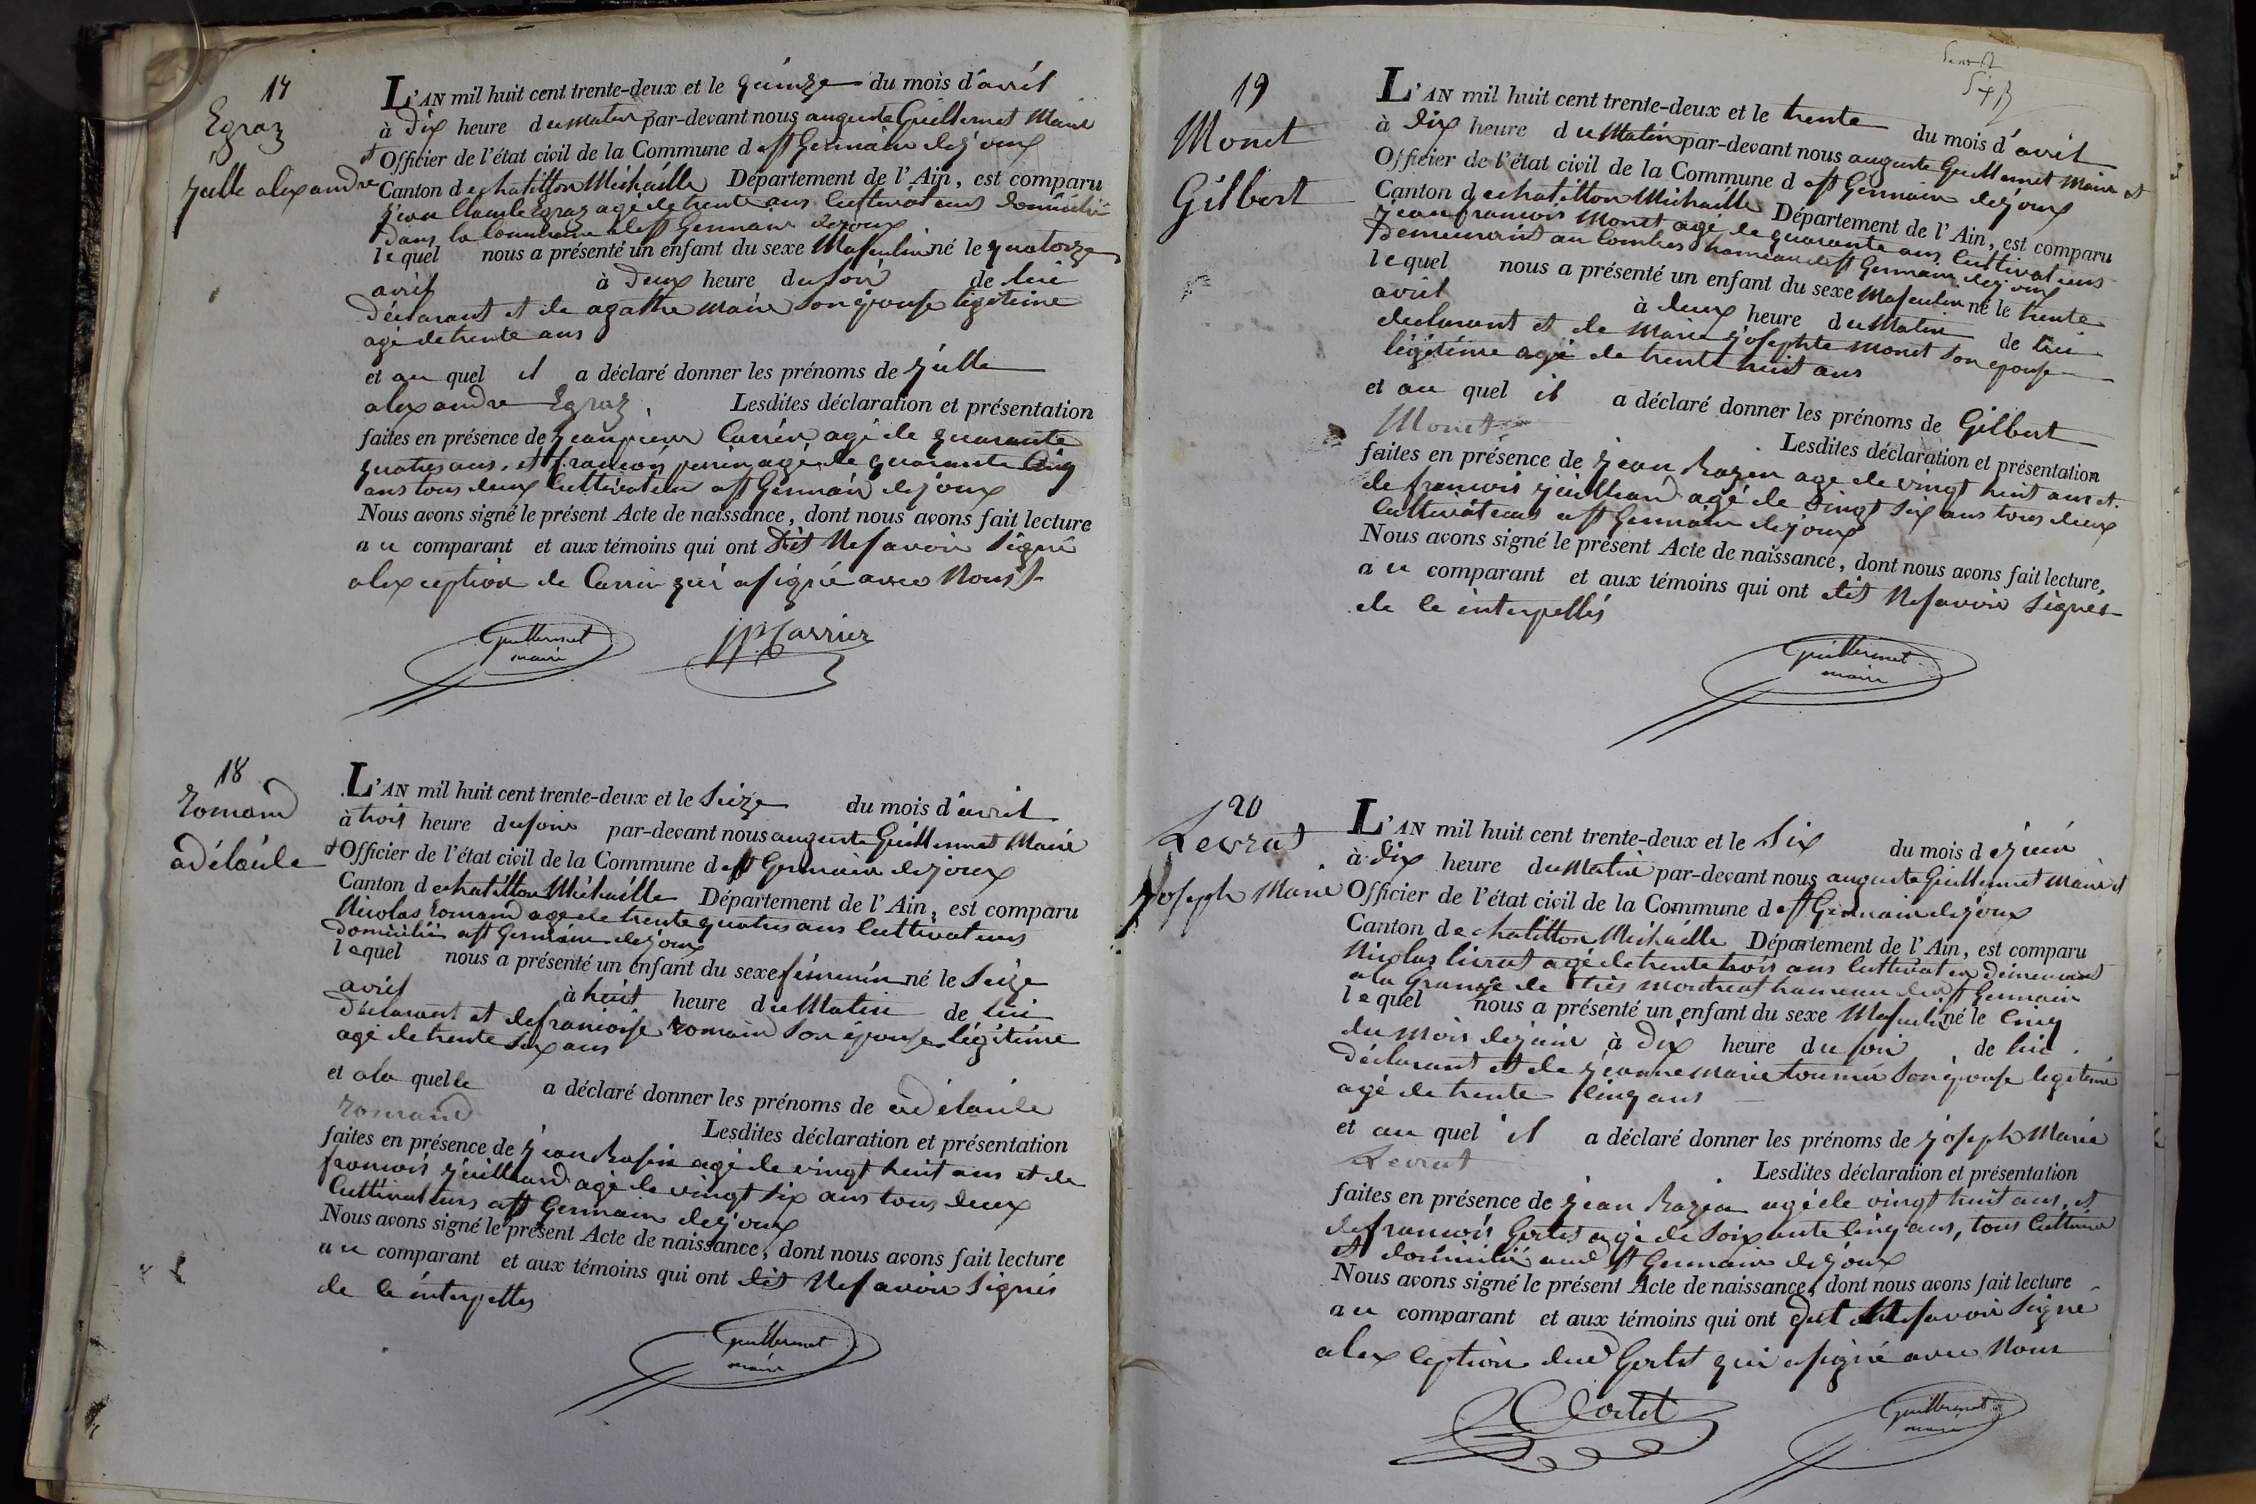 17
Egraz
Julle alexandre
L'AN mil huit cent trente-deux et le quinze du mois d'avril
à dix heure du matin par-devant nous auguste Guillermet Maire
et Officier de l'état civil de la Commune de st Germain dejoux
Canton de chatillon Michaille Département de l'Ain, est comparu
jean Claude Egraz agé de trente ans Cultivateur domicilié
dans la Commune de st Germain dejoux
lequel nous a présenté un enfant du sexe Masculin né le quatorze
avril à deux heure du soir de lui
déclarant et de agathe maire son épouse légitime
agé de trente ans
et au quel il a déclaré donner les prénoms de Julle
alexandre Egraz. Lesdites déclaration et présentation
faites en présence de jean pierre Carrier agé de quarante
quatres ans, et françois perrin agé de quarante cinq
ans tous deux Cultivateur a st Germain dejoux
Nous avons signé le présent Acte de naissance, dont nous avons fait lecture
au comparant et aux témoins qui ont dit Ne savoir signé
alexception de Carrier qui a signé avec Nous
Guillermet
maire
JP. Carrier
18
romand
adélaïde
L'AN mil huit cent trente-deux et le seize du mois d'avril
à trois heure du soir par-devant nous auguste Guillermet Maire
et Officier de l'état civil de la Commune de st Germain dejoux
Canton de chatillon Michaille Département de l'Ain, est comparu
Nicolas romand agé de trente quatres ans Cultivateurs
domicilié a st Germain dejoux
lequel nous a présenté un enfant du sexe féminin né le seize
avril à huit heure du Matin de lui
déclarant et de françoise romand son épouse légitime
agé de trente six ans
et a la quelle a déclaré donner les prénoms de adélaïde
romand Lesdites déclaration et présentation
faites en présence de jean Rosin agé de vingt huit ans et de
francois juilliard agé de vingt six ans tous deux
Cultivateurs a st Germain dejoux
Nous avons signé le présent Acte de naissance, dont nous avons fait lecture
au comparant et aux témoins qui ont dit Ne savoir signés
de ce interpellés
Guillermet
maire
six
19
Monet
Gilbert
L'AN mil huit cent trente-deux et le trente du mois d'avril
à dix heure du Matin par-devant nous auguste Guillermet Maire et
Officier de l'état civil de la Commune de st Germain dejoux
Canton de chatillon Michaille Département de l'Ain, est comparu
jean francois Monet agé de quarante ans Cultivateurs
demeurant au Combes hameau de st Germain dejoux
lequel nous a présenté un enfant du sexe Masculin né le trente
avril à deux heure du Matin de lui
declarant et de Marie josephte Monet son epouse
légitime agé de trente huit ans
et au quel il a déclaré donner les prénoms de Gilbert
Monet Lesdites déclaration et présentation
faites en présence de jean Rozin agé de vingt huit ans et
de francois juilliard agé de vingt six ans tous deux
Cultivateurs a st Germain dejoux
Nous avons signé le présent Acte de naissance, dont nous avons fait lecture,
au comparant et aux témoins qui ont dit Ne savoir signer
de ce interpellés
Guillermet
maire
20
Levrat
Joseph Marie
L'AN mil huit cent trente-deux et le Six du mois de juin
à dix heure du Matin par-devant nous auguste Guillermet Maire et
Officier de l'état civil de la Commune de st Germain dejoux
Canton de chatillon Michaille Département de l'Ain, est comparu
Nicolas livrat agé de trente trois ans Cultivateur demeurant
a la Grange de tres montreat hameau de st Germain
lequel nous a présenté un enfant du sexe Masculin né le Cinq
du mois de juin à dix heure du soir de lui
déclarant et de jeanne marie tournier son épouse légitime
agé de trente cinq ans
et au quel il a déclaré donner les prénoms de joseph Marie
Levrat Lesdites déclaration et présentation
faites en présence de jean Rozin agé de vingt huit ans, et
de francois Gertet agé de soixante cinq ans, tous Cultiva
et domicilié aud st Germain dejoux
Nous avons signé le présent Acte de naissance, dont nous avons fait lecture
au comparant et aux témoins qui ont dit Ne savoir signé
alexception dud Gertet qui a signé avec Nous
Guillermet
maire